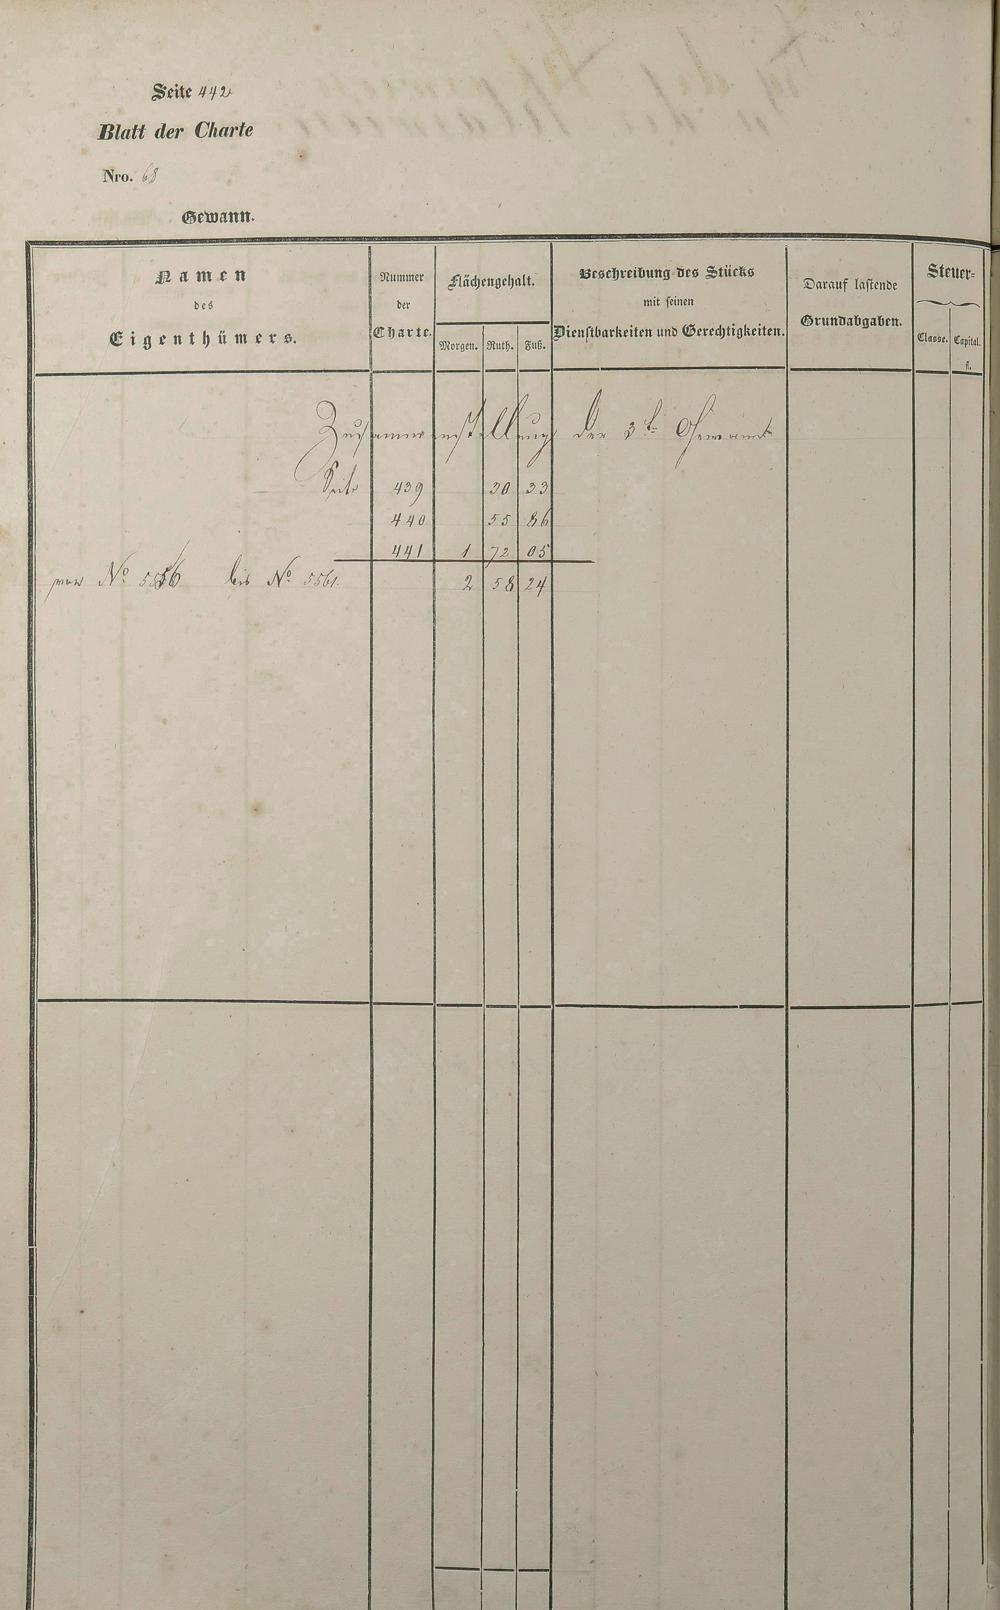 Seite 442
Blatt der Charte
Nro. 68
Gewann.
Namen des Eigenthümers.
Nummer der Charte.
Flächengehalt.
Morgen. Ruth. Fuß.
Beschreibung des Stücks mit seinen Dienstbarkeiten und Gerechtigkeiten.
Darauf lastende Grundabgaben.
Steuer-
Classe. Capital.
fl.
Zusammenstellung der 3t. Gewannt
Seite 439 30 33
440 55 86
441 1 72 05
von No 5556 bis No 5561. 2 58 24